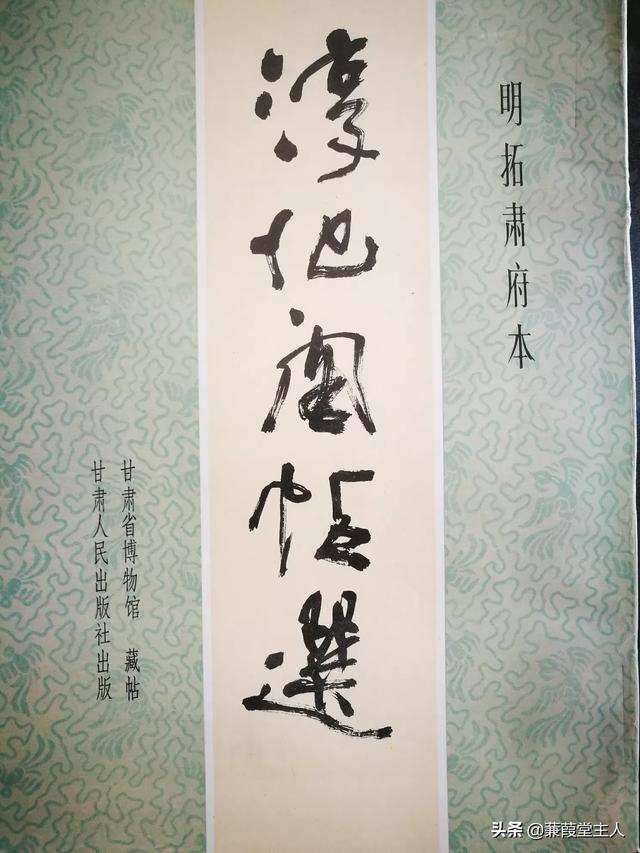 明拓肃府本
淳化阁帖选
甘肃省博物馆 藏帖
甘肃人民出版社出版
头条 @蒹葭堂主人